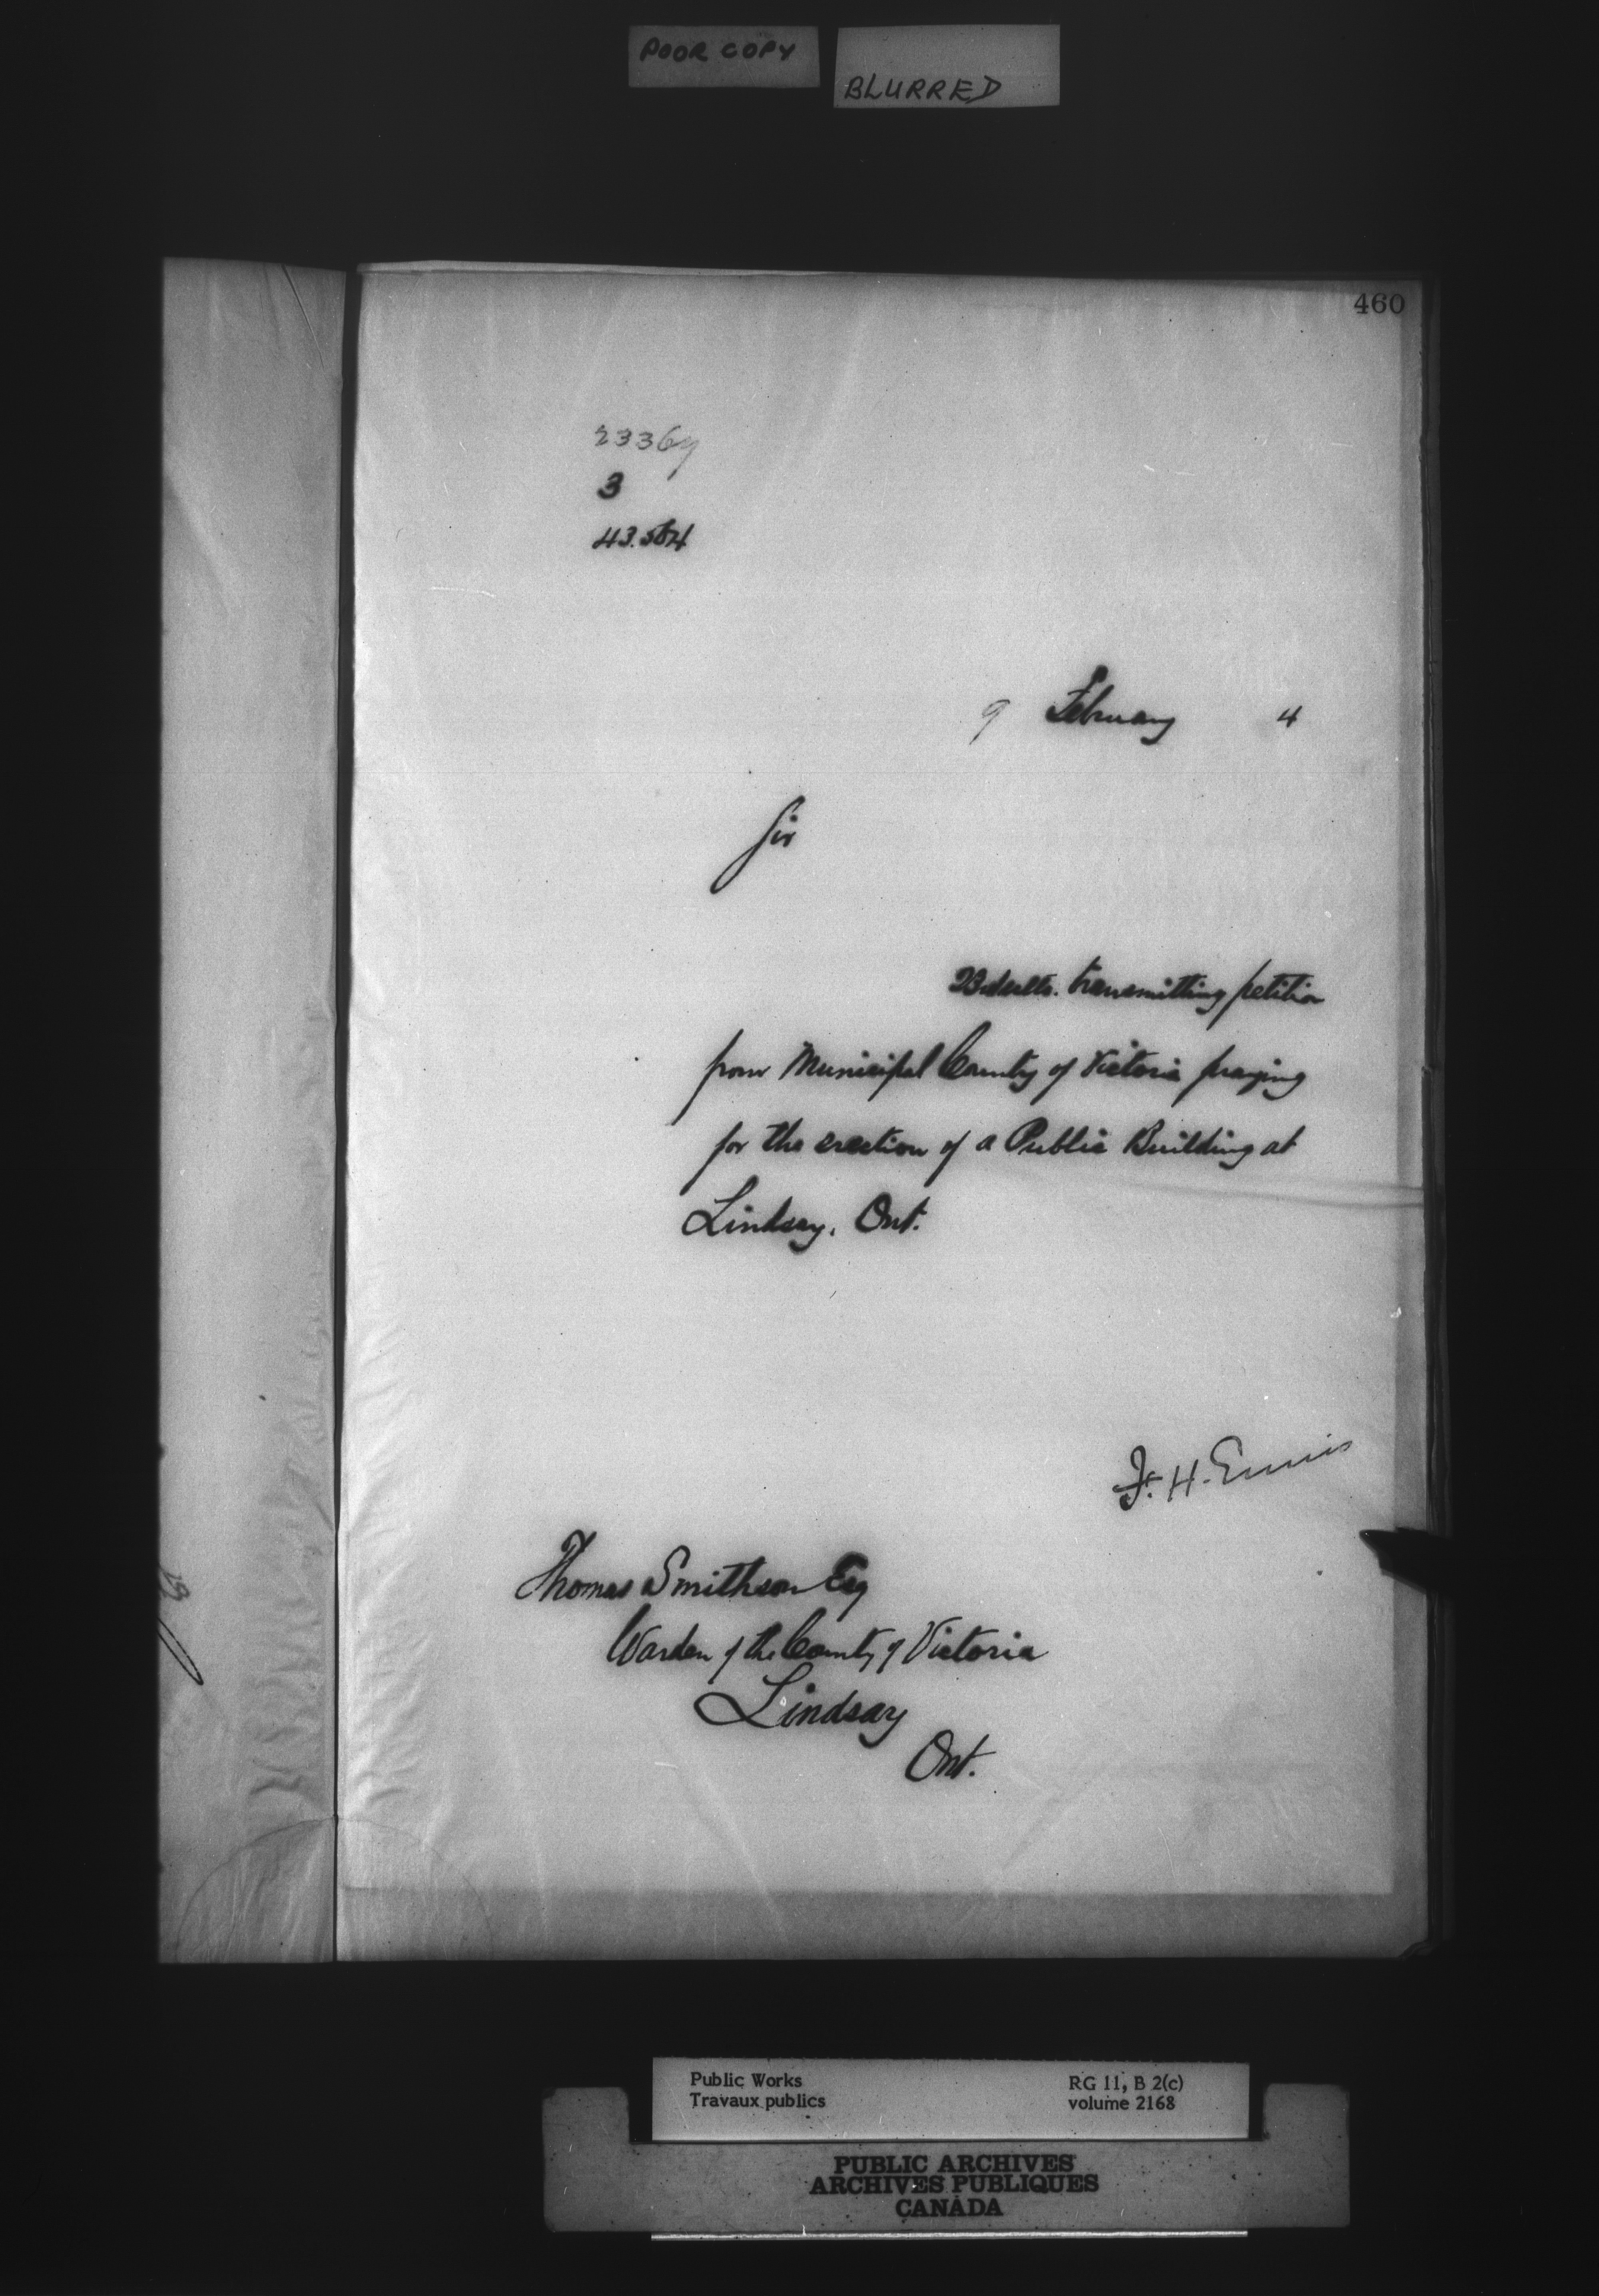 POOR COPY
BLURRED
460
23369
3
43.564
9 February 4
Sir
23rd ulto. transmitting petition
from Municipal County of Victoria praying
for the erection of a Public Building at
Lindsay, Ont.
F. H. Ennis
Thomas Smithson Esq
Warden of the County of Victoria
Lindsay
Ont.
Public Works
Travaux publics
RG 11, B 2(c)
volume 2168
PUBLIC ARCHIVES
ARCHIVES PUBLIQUES
CANADA